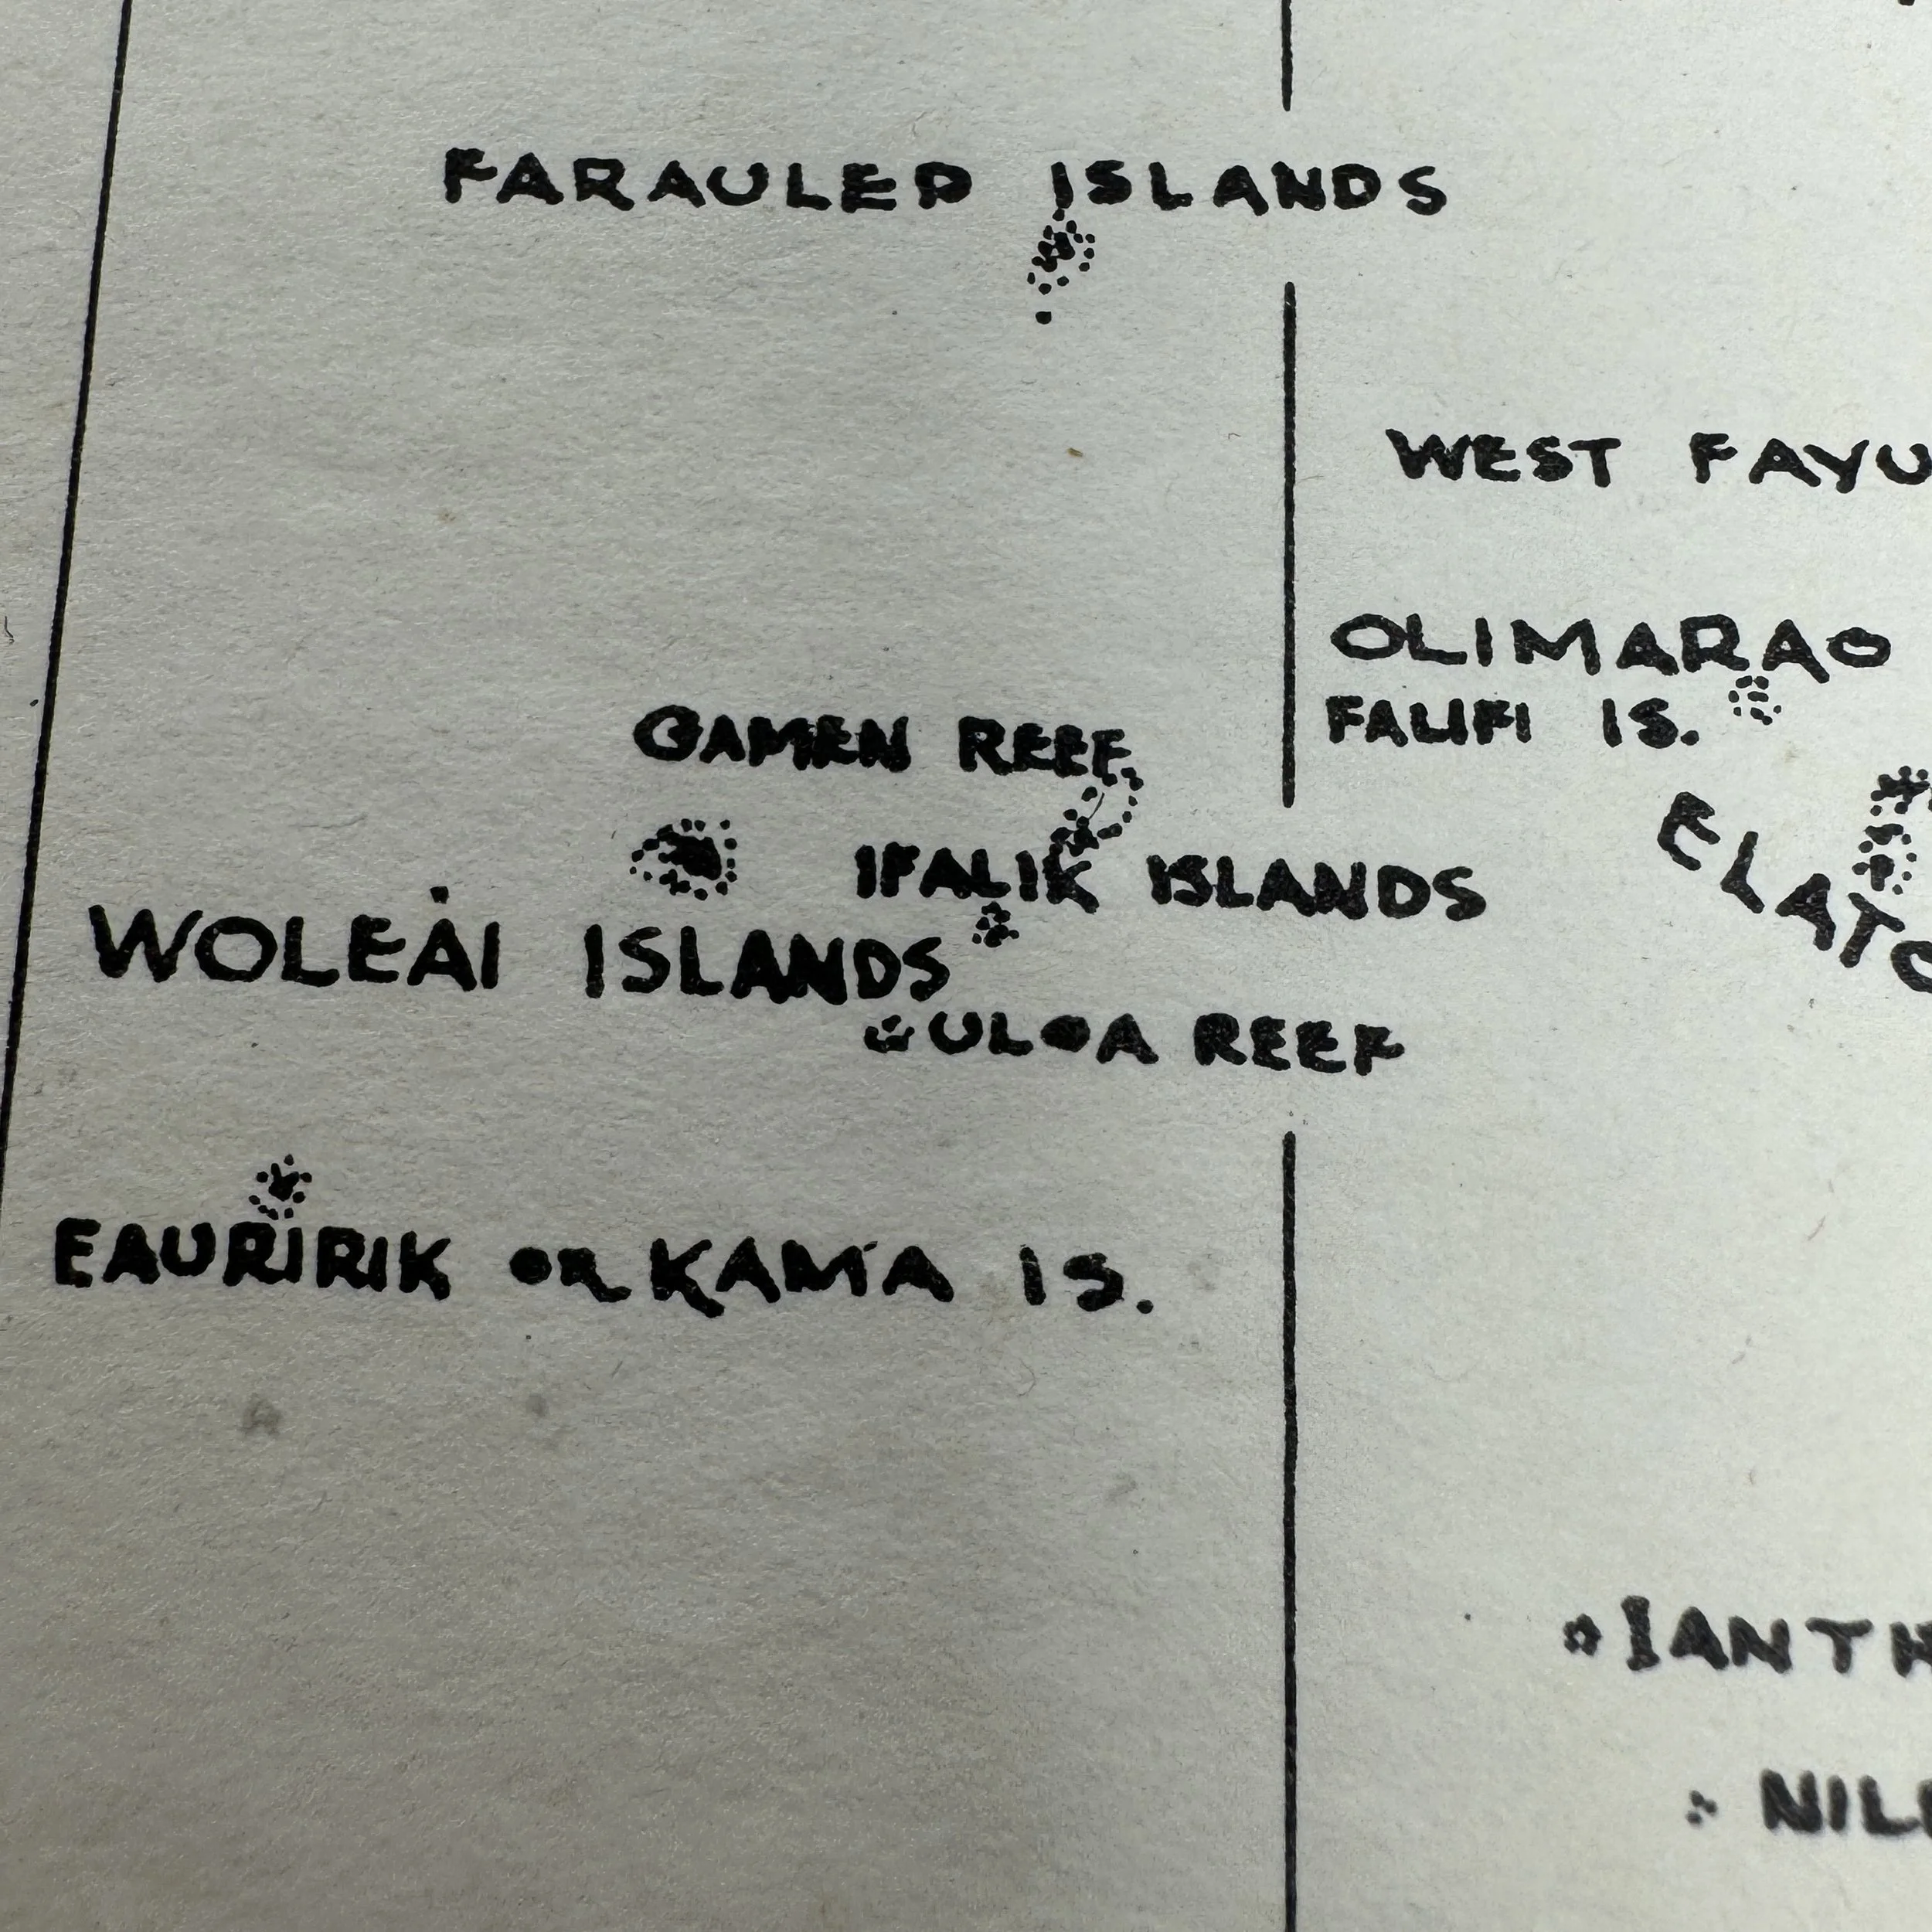 FARAULEP ISLANDS
WEST FAYU
OLIMARAO
FALIFI IS.
GAMEN REEF
ELATO
IFALIK ISLANDS
WOLEAI ISLANDS
ULOA REEF
EAURIRIK OR KAMA IS.
IANTH
NIL